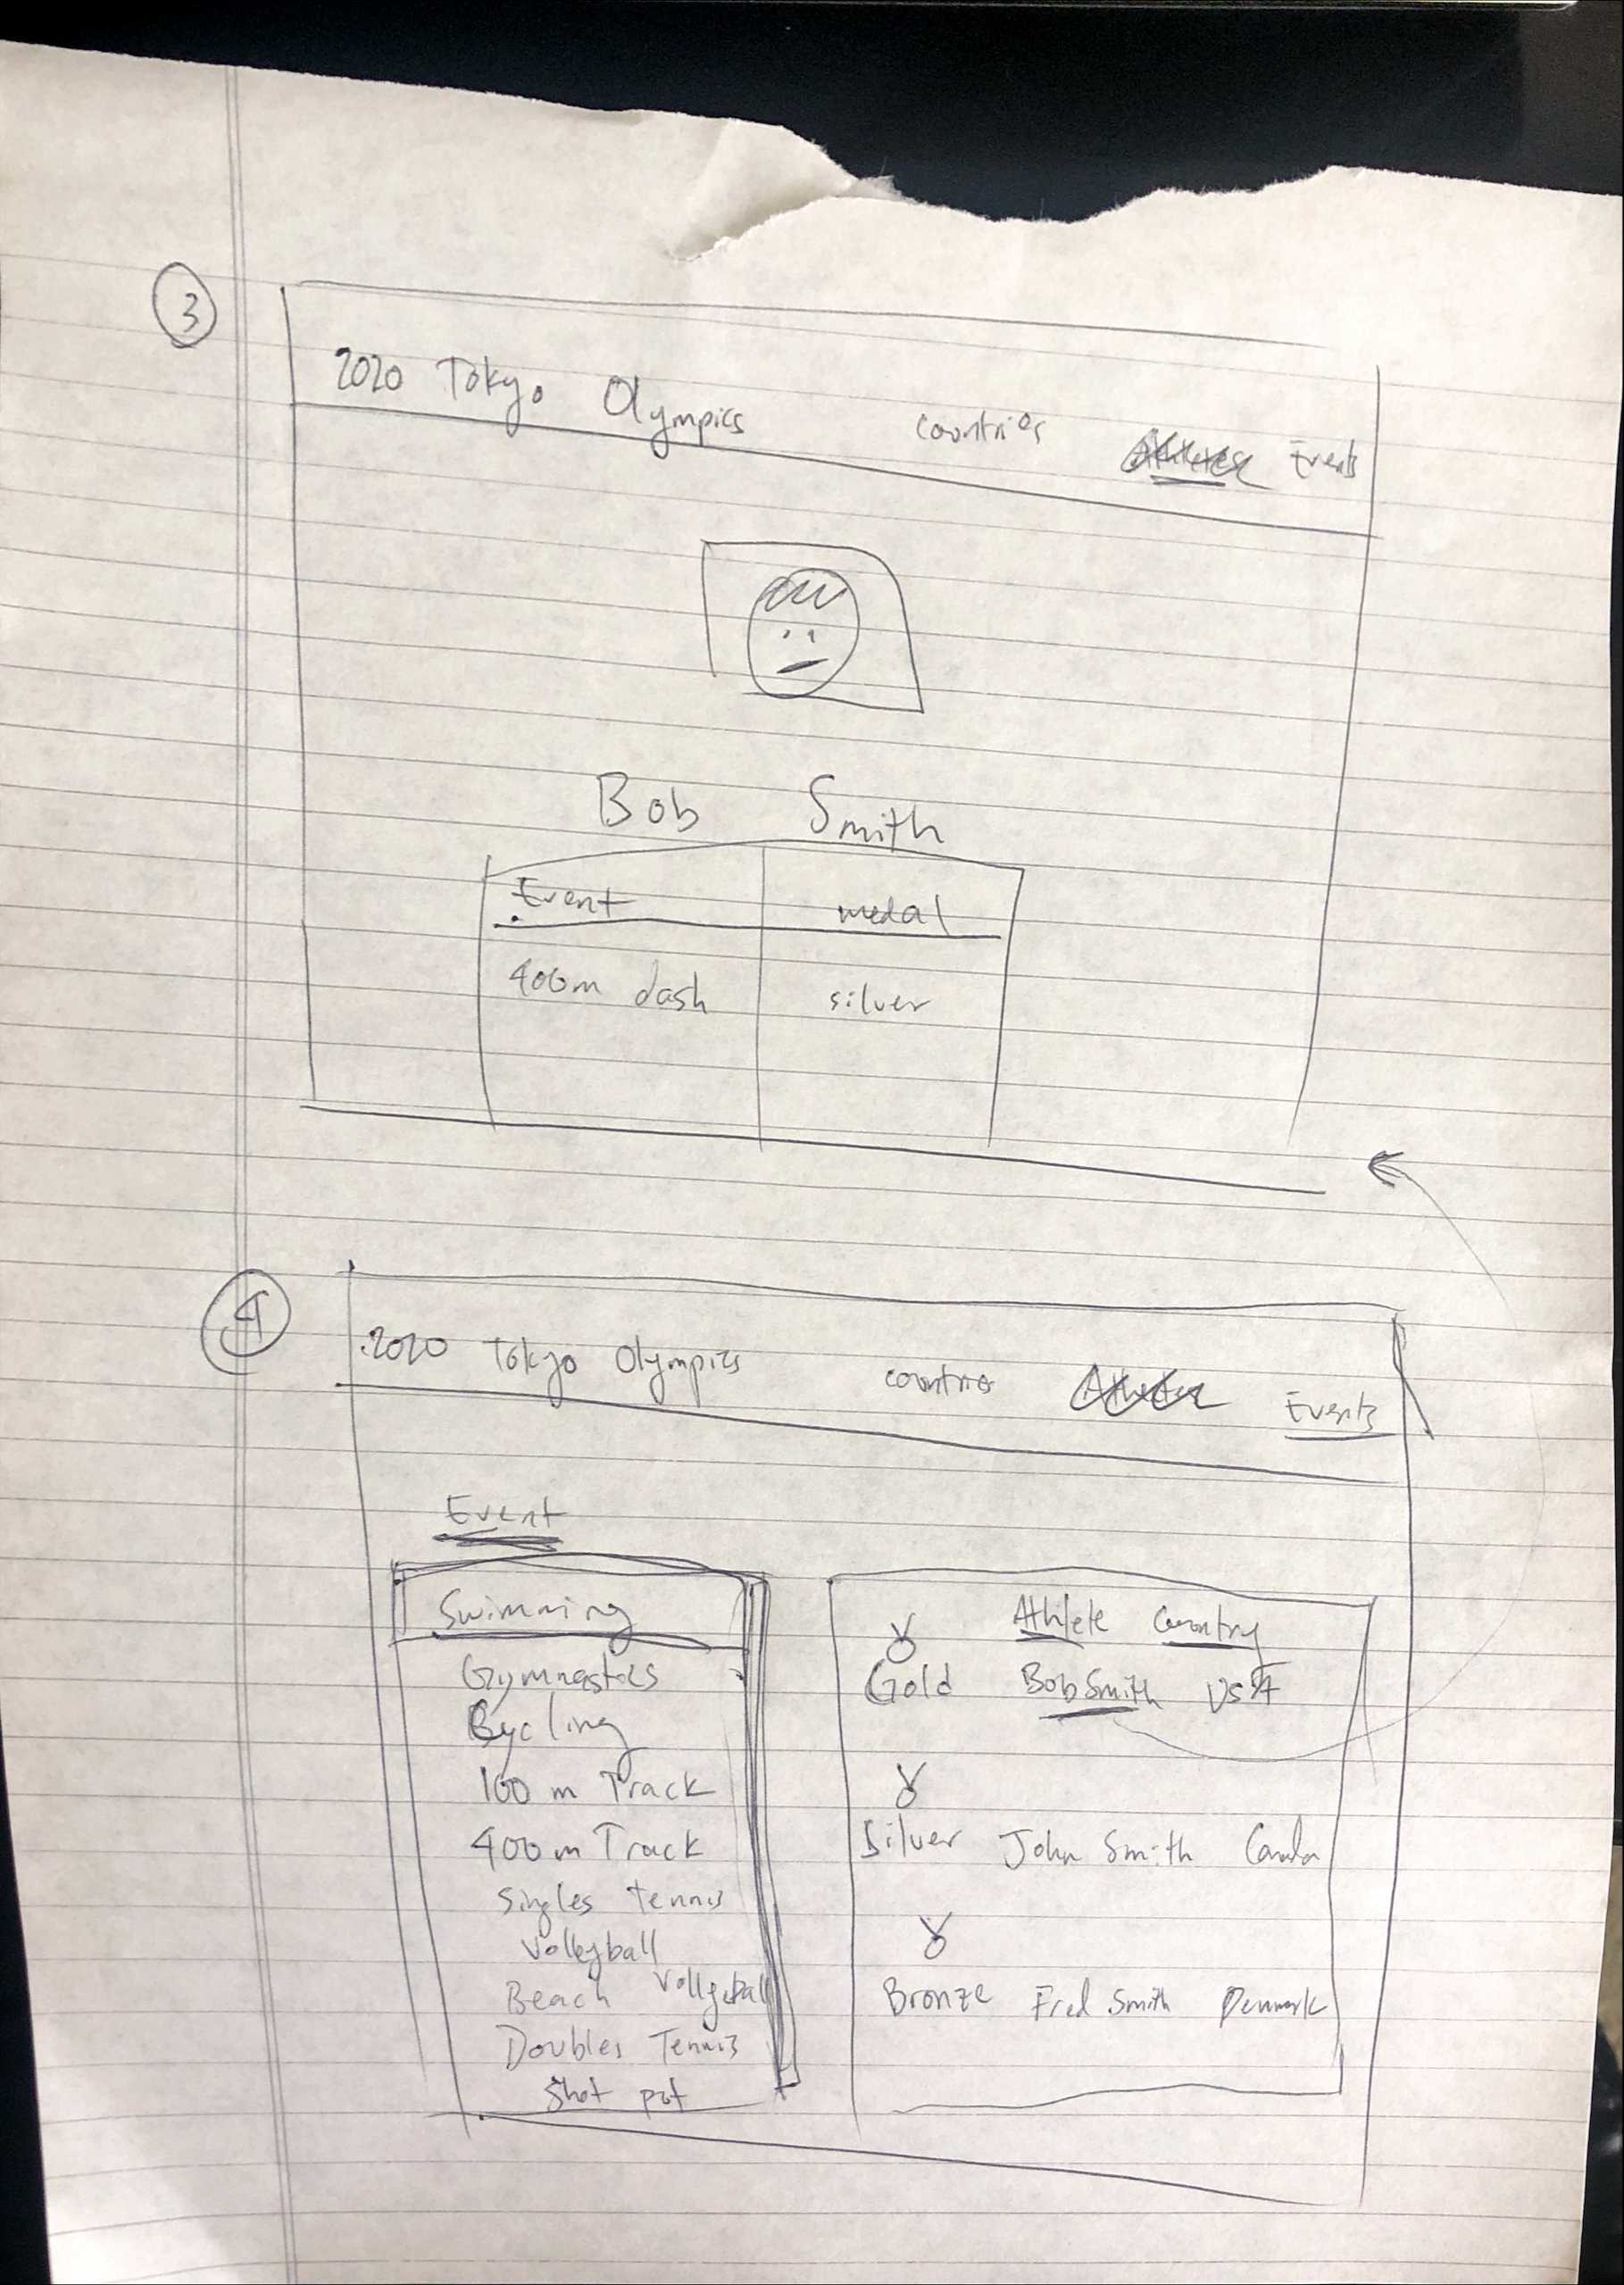 3
2020 Tokyo Olympics countries Athletes Events
Bob Smith
Event medal
400m dash silver
4
2020 Tokyo Olympics countries Athletes Events
Event
Swimming
Gymnastics
Cycling
100 m Track
400 m Track
Singles Tennis
Volleyball
Beach Volleyball
Doubles Tennis
Shot put
Athlete Country
Gold Bob Smith USA
Silver John Smith Canada
Bronze Fred Smith Denmark